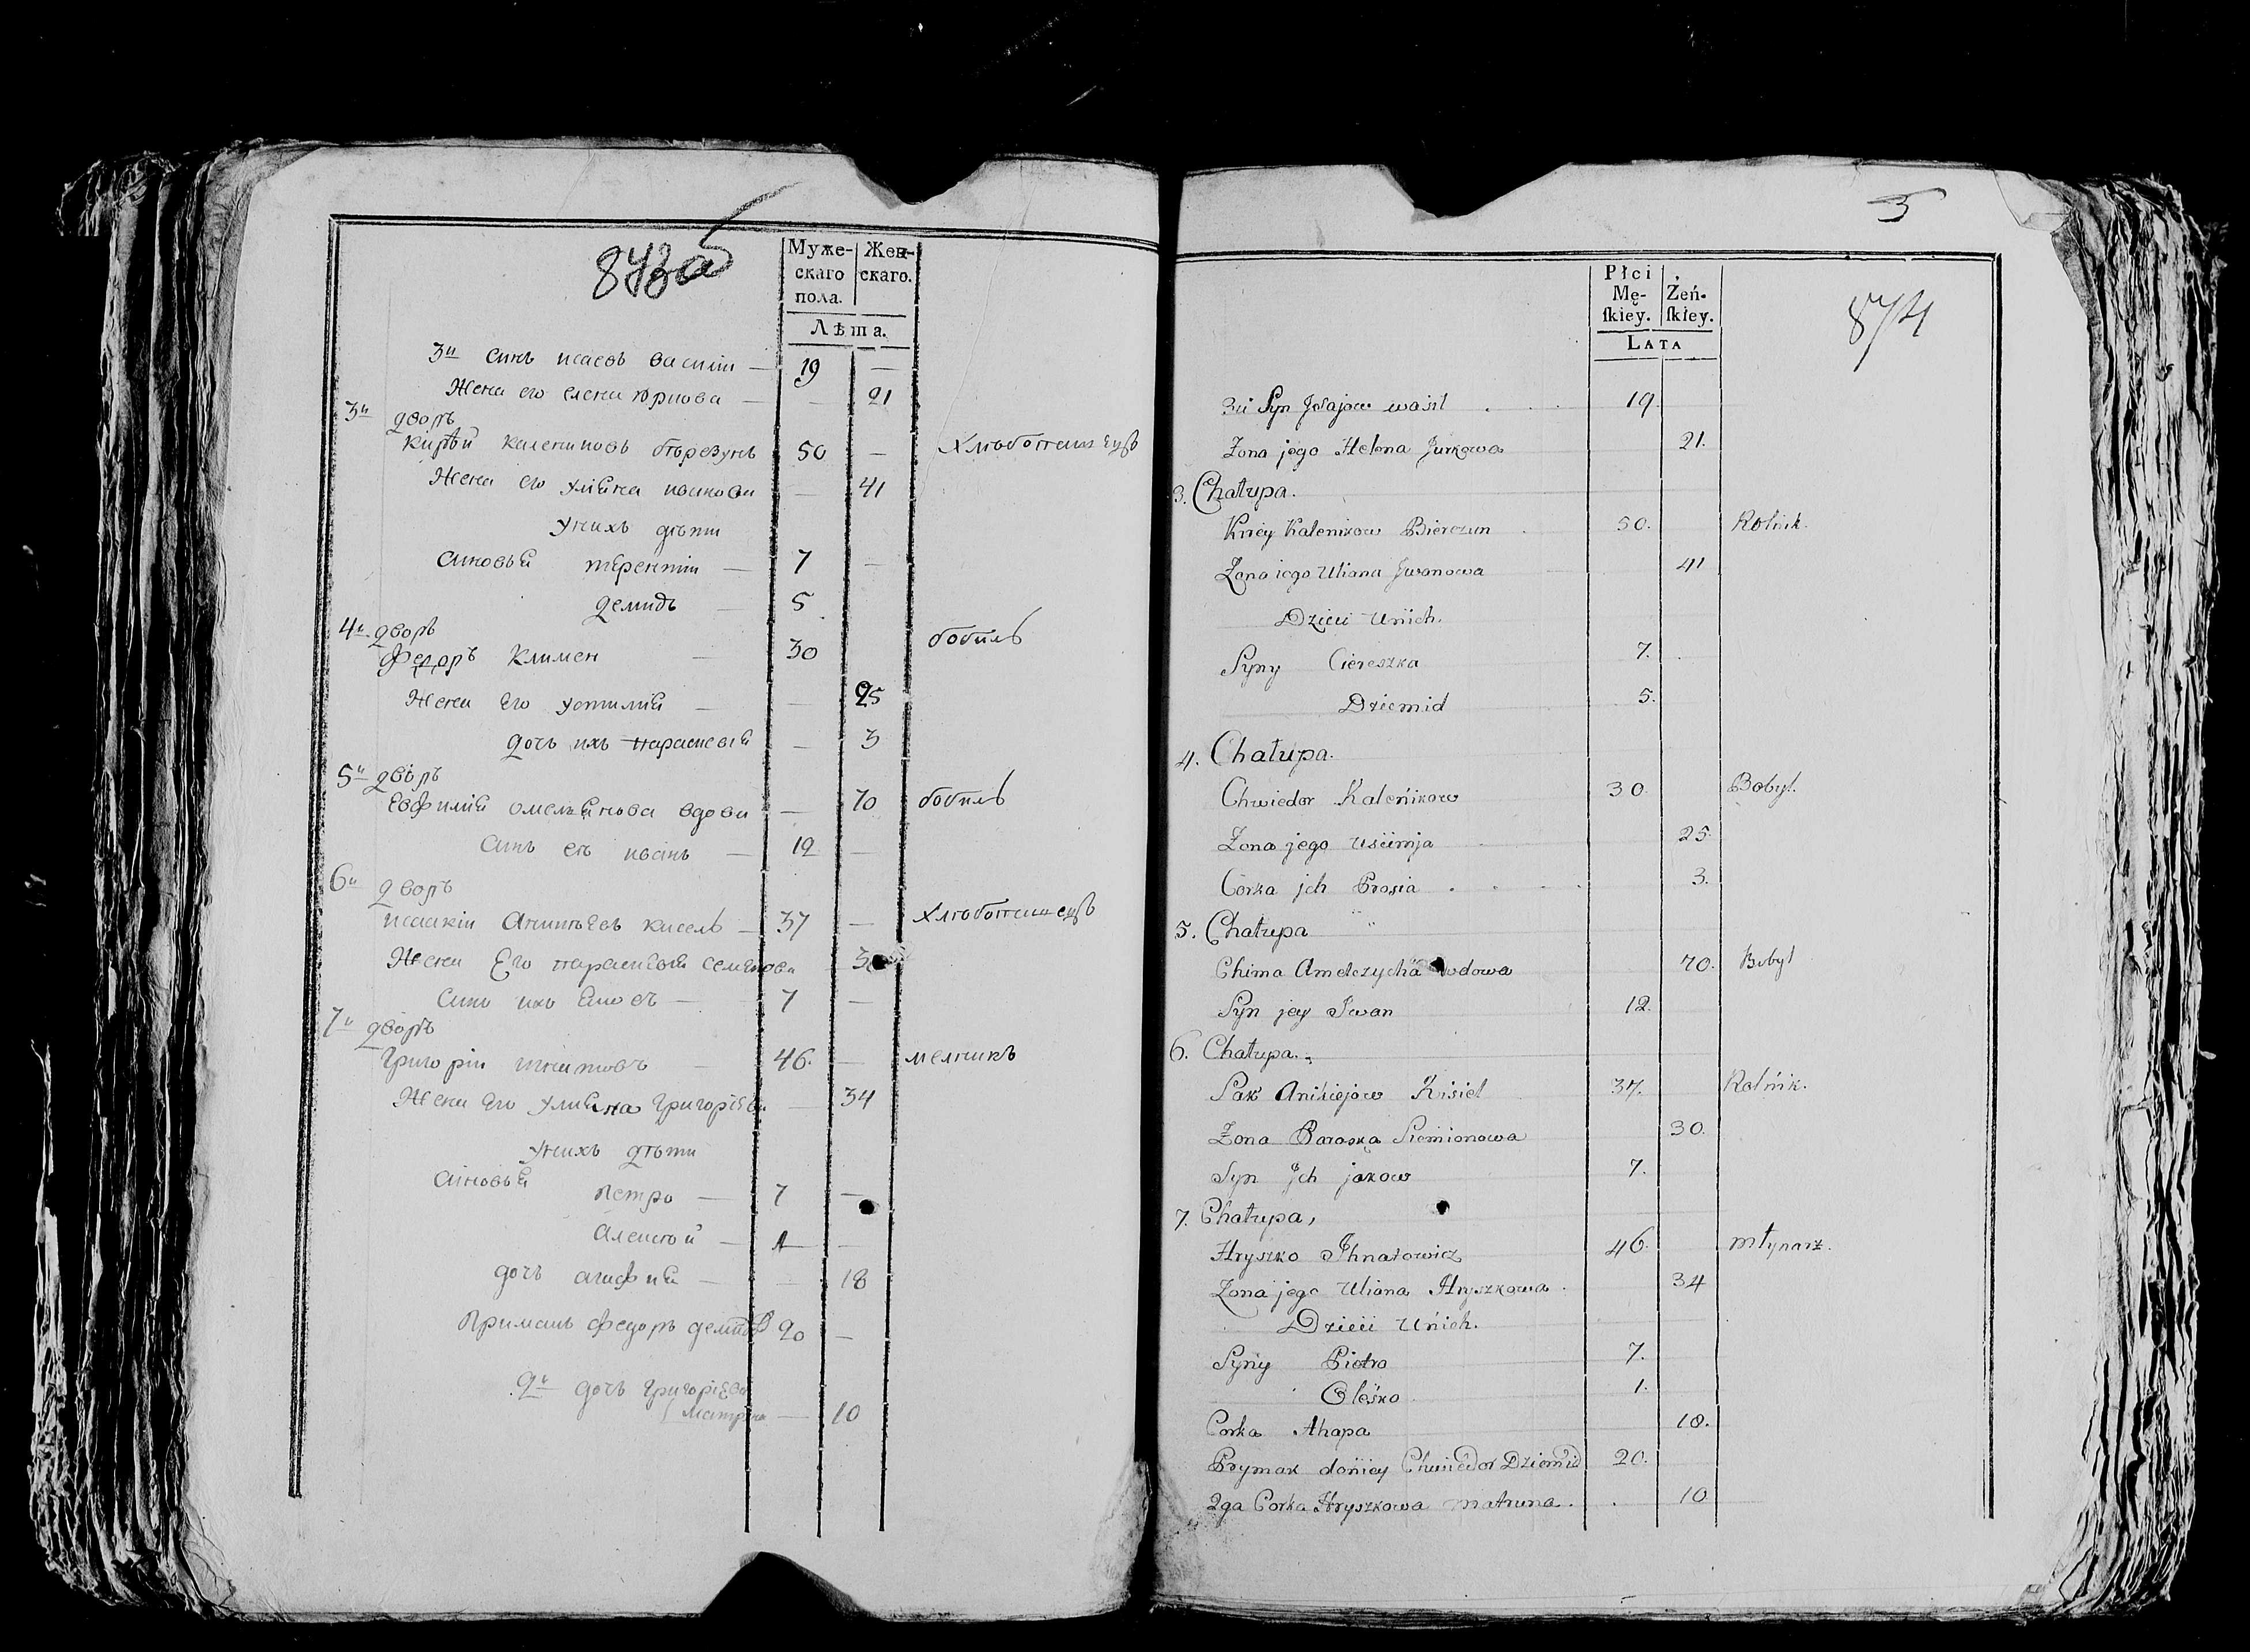 873а
Муже-
скаго
пола.
Жен-
скаго.
Лѣта.
3й синъ исаевъ василіи — 19 —
Жена его елена юркова — — 21
3й дворъ
кирѣй калениковъ бѣрезунъ 50 — Хлѣбопашецъ
Жена его уліяна иванова — 41
у нихъ дѣти
Синовья терентіи — 7 —
демидъ — 5
4й дворъ
Федоръ Климен — 30 бобиль
Жена Его устимія — — 25
дочь ихъ параскевія — 3
5й дворъ
Евфимія омельянова вдова — 70 бобиль
Синъ еѣ иванъ — 12 —
6й дворъ
исаакіи Аникѣевъ Кисель — 37 — хлѣбопашецъ
Жена Его параскевія семенова
Синъ ихъ — 7 —
7й дворъ
Григоріи игнатовъ — 46. — мелникъ
Жена Его Улияна Григоріева — 34
у нихъ дѣти
Синовья Петро — 7 —
Алексѣй — 1 —
дочь агафия — — 18
Примакъ федоръ демидовъ 20 —
2я дочь Григоріева
Матрона — 10
5
874
Płci
Mę-
ſkiey.
Żeń-
ſkiey.
LATA
3ci Syn Jsajow wasil 19.
Zona jego Helena Jurkowa 21.
3. Chałupa.
Kiriey Kalenikow Bierezun 50. Rolnik.
Zona iego Uliana Jwanowa 41
Dzieci Unich.
Syny Ciereszka 7.
Dziemid 5.
4. Chałupa.
Chwiedor Kalenikow 30 Bobyl.
Zona jego Uscimja 25
Corka jch Prosia 3.
5. Chałupa
Chima Amelczycha wdowa 70. Bobyl
Syn jey Jwan 12.
6. Chałupa.
Sak Anikiejow Kisiel 37. Rolnik.
Zona Paraska Siemionowa 30.
Syn Jch jakow 7.
7. Chałupa,
Hryszko Jhnatowicz 46. młynarz.
Zona jego Uliana Hryszkowa 34
Dzieci Unich.
Syny Piotro 7.
Olesko 1.
Corka Ahapa 18.
Prymak doniey Chwiedor Dziemid 20.
2ga Corka Hryszkowa matruna. 10